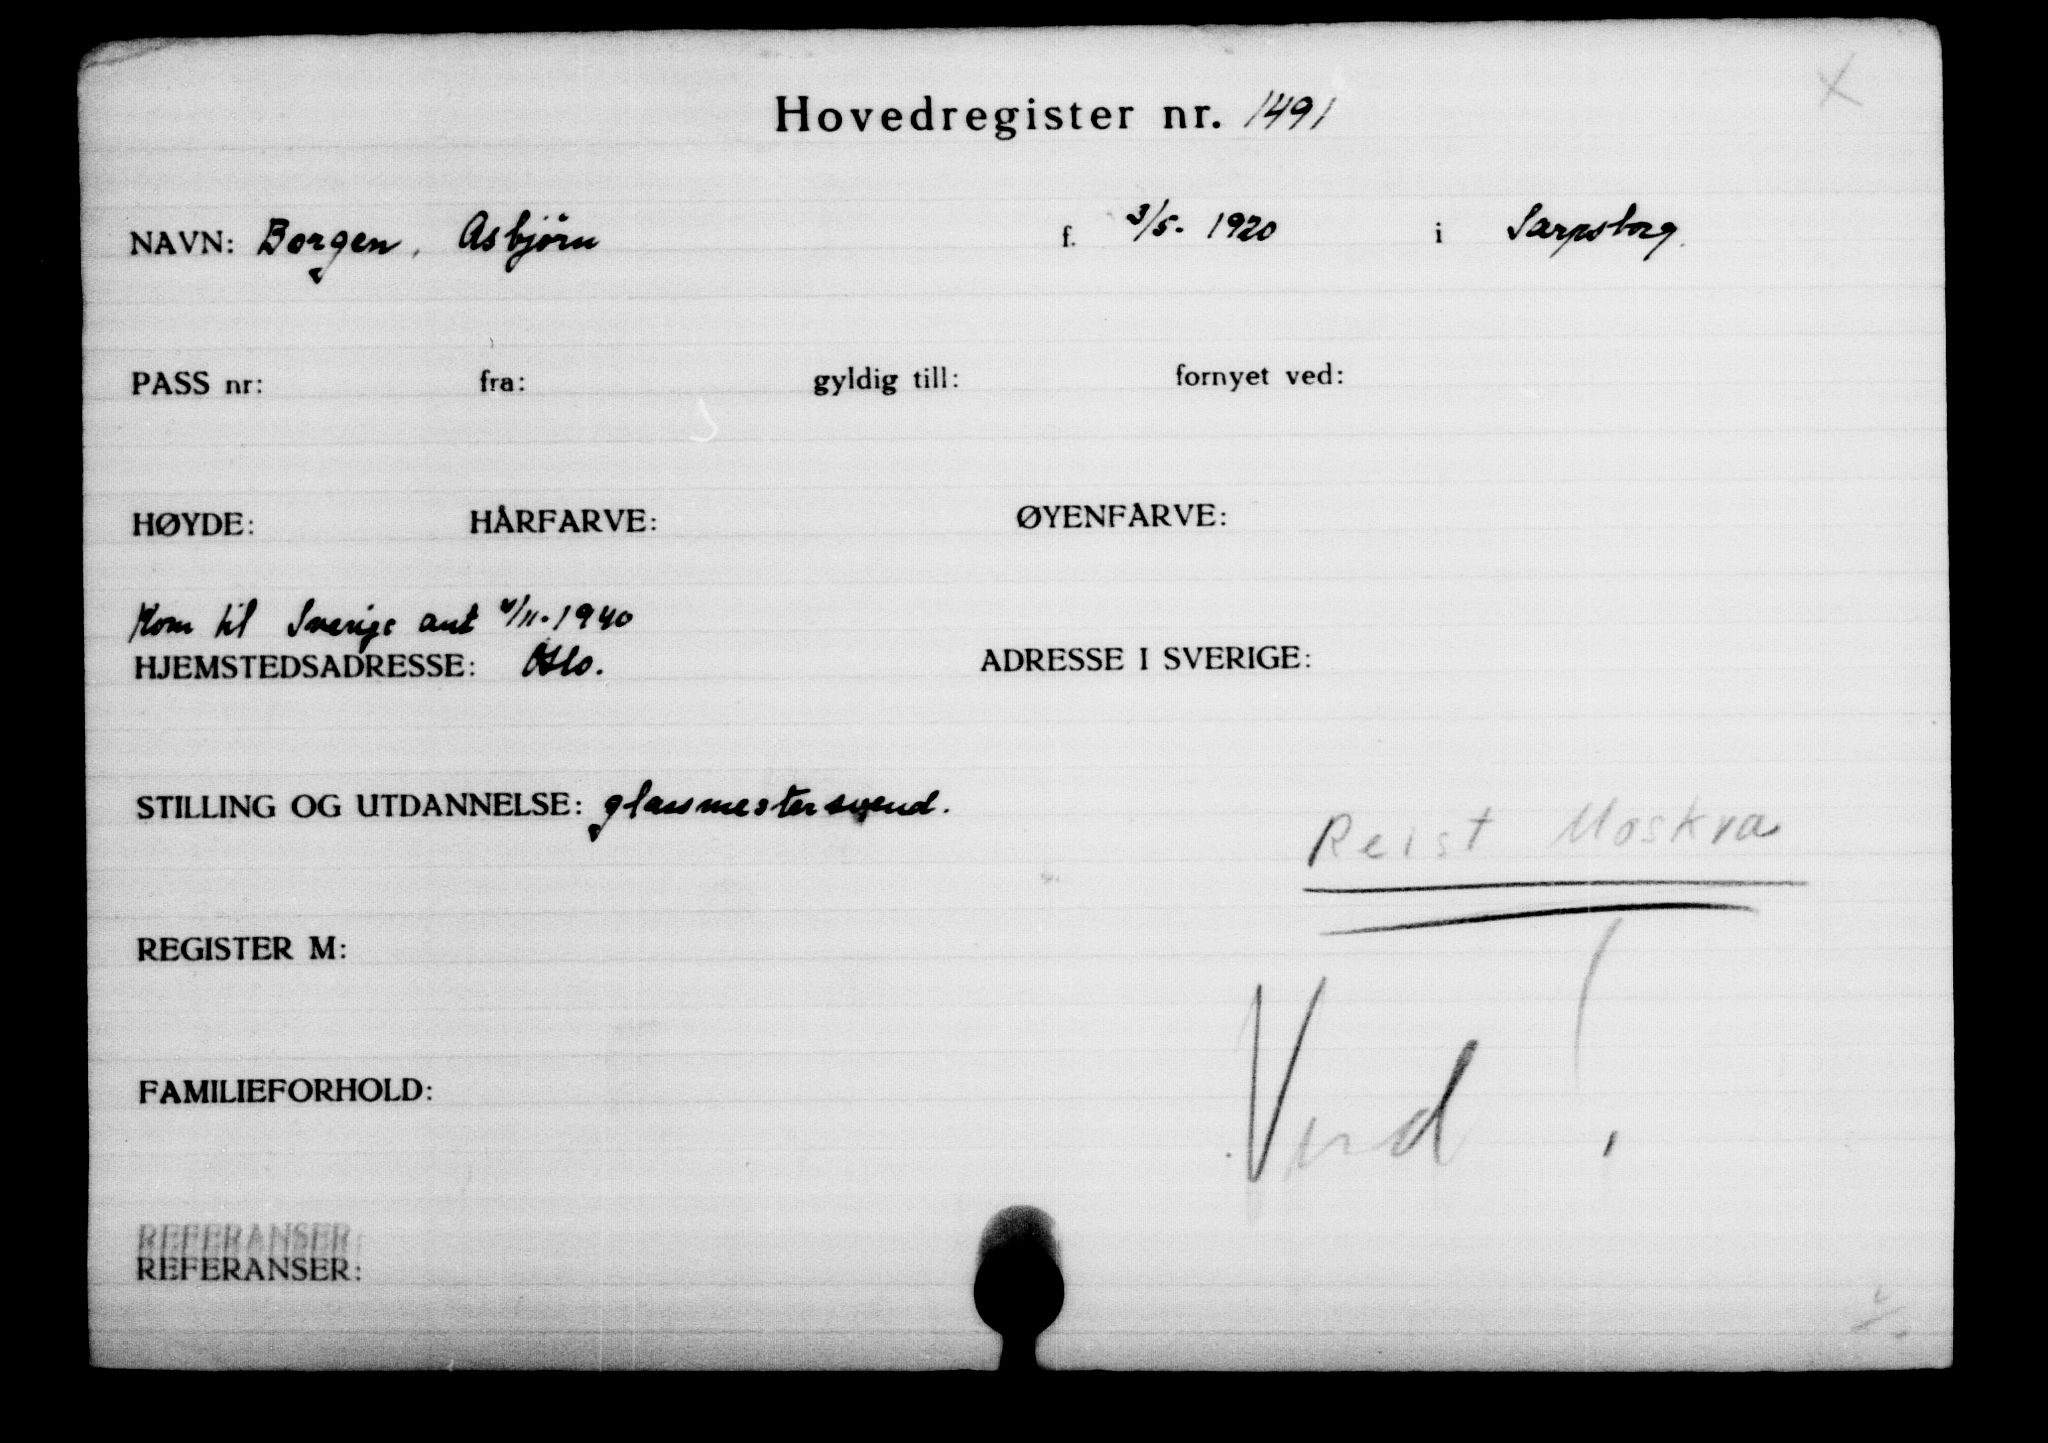 Hovedregister nr. 1491
NAVN: Borgen, Asbjørn f. 3/5-1920 i Sarpsborg.
PASS nr: fra: gyldig till: fornyet ved:
HØYDE: HÅRFARVE: ØYENFARVE:
Kom til Sverige ant /11-1940
HJEMSTEDSADRESSE: Oslo. ADRESSE I SVERIGE:
STILLING OG UTDANNELSE: glassmestersvend.
Reist Moskva
REGISTER M:
Vend !
FAMILIEFORHOLD:
REFERANSER:
REFERANSER: